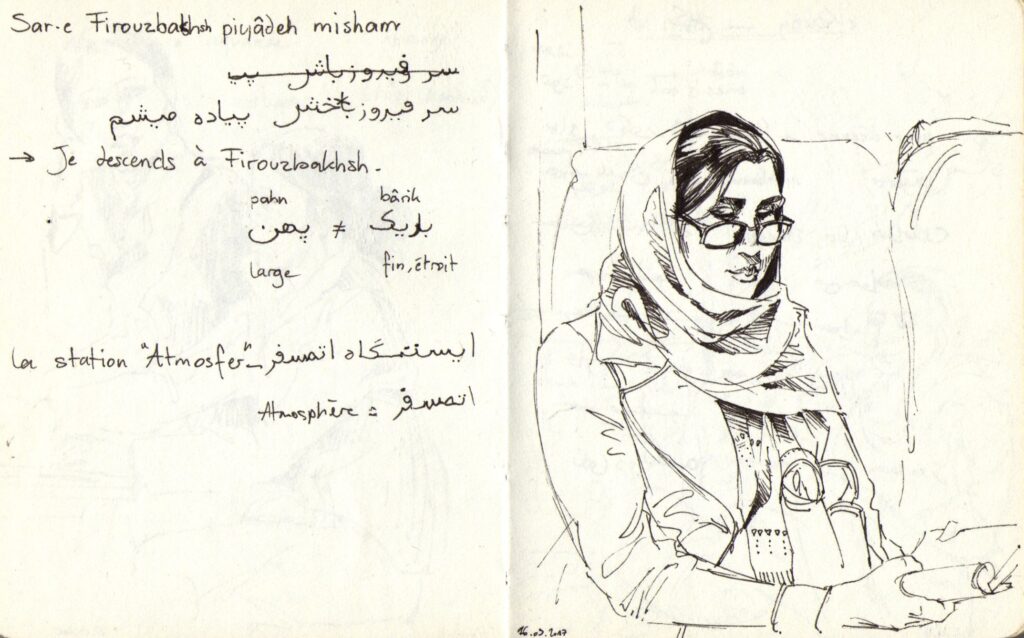 Sar-e Firouzbakhsh piyâdeh misham
سر فیروز باش پیـ
سر فیروز بخش پیاده میشم
→ Je descends à Firouzbakhsh.
pahn bârik
پهن ≠ باریک
large fin, étroit
la station "Atmosfer" = ایستگاه اتمسفر
Atmosphère = اتمسفر